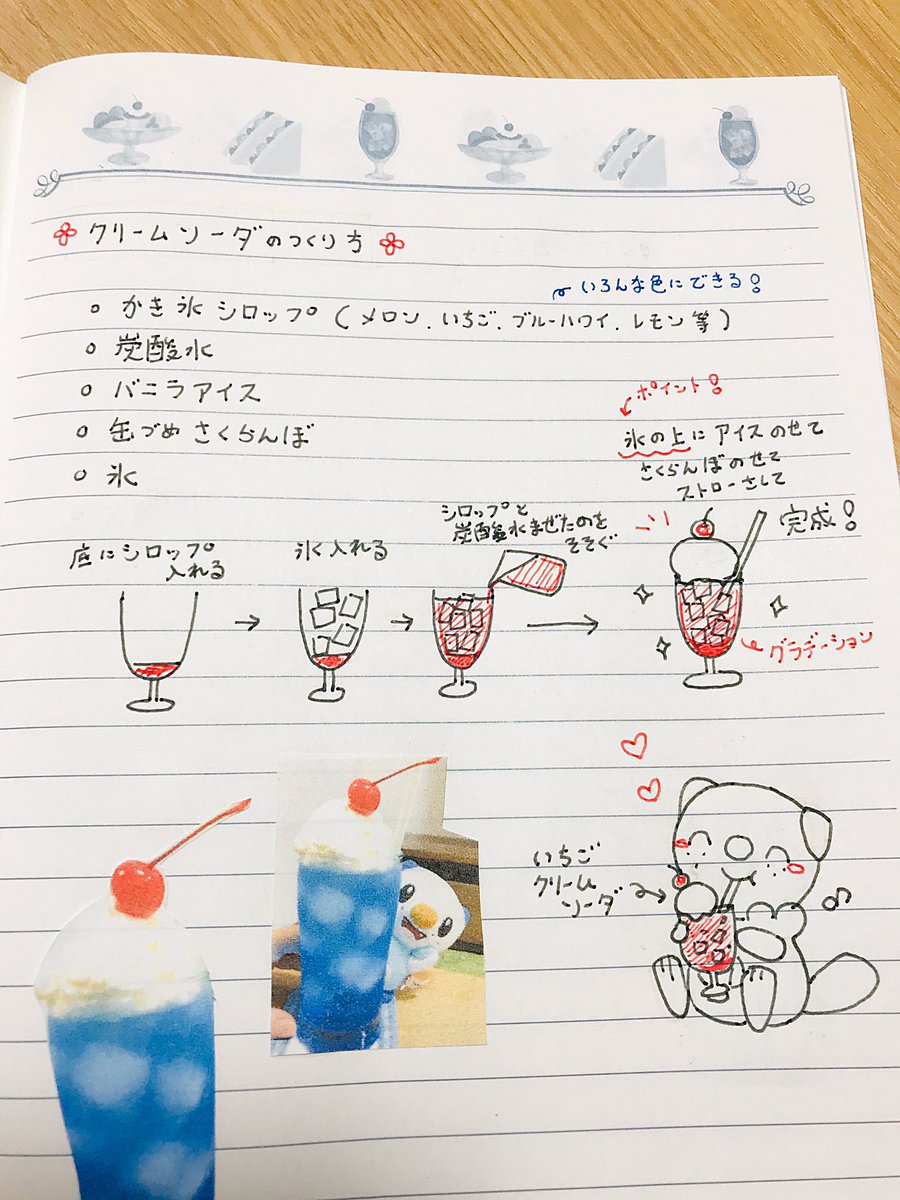 クリームソーダのつくり方
いろんな色にできる!
○ かき氷シロップ (メロン、いちご、ブルーハワイ、レモン等)
○ 炭酸水
○ バニラアイス
○ 缶づめさくらんぼ
○ 氷
底にシロップ
入れる
氷入れる
シロップと
炭酸水まぜたのを
そそぐ
ポイント!
氷の上にアイスのせて
さくらんぼのせて
ストローさして
完成!
グラデーション
いちご
クリーム
ソーダ